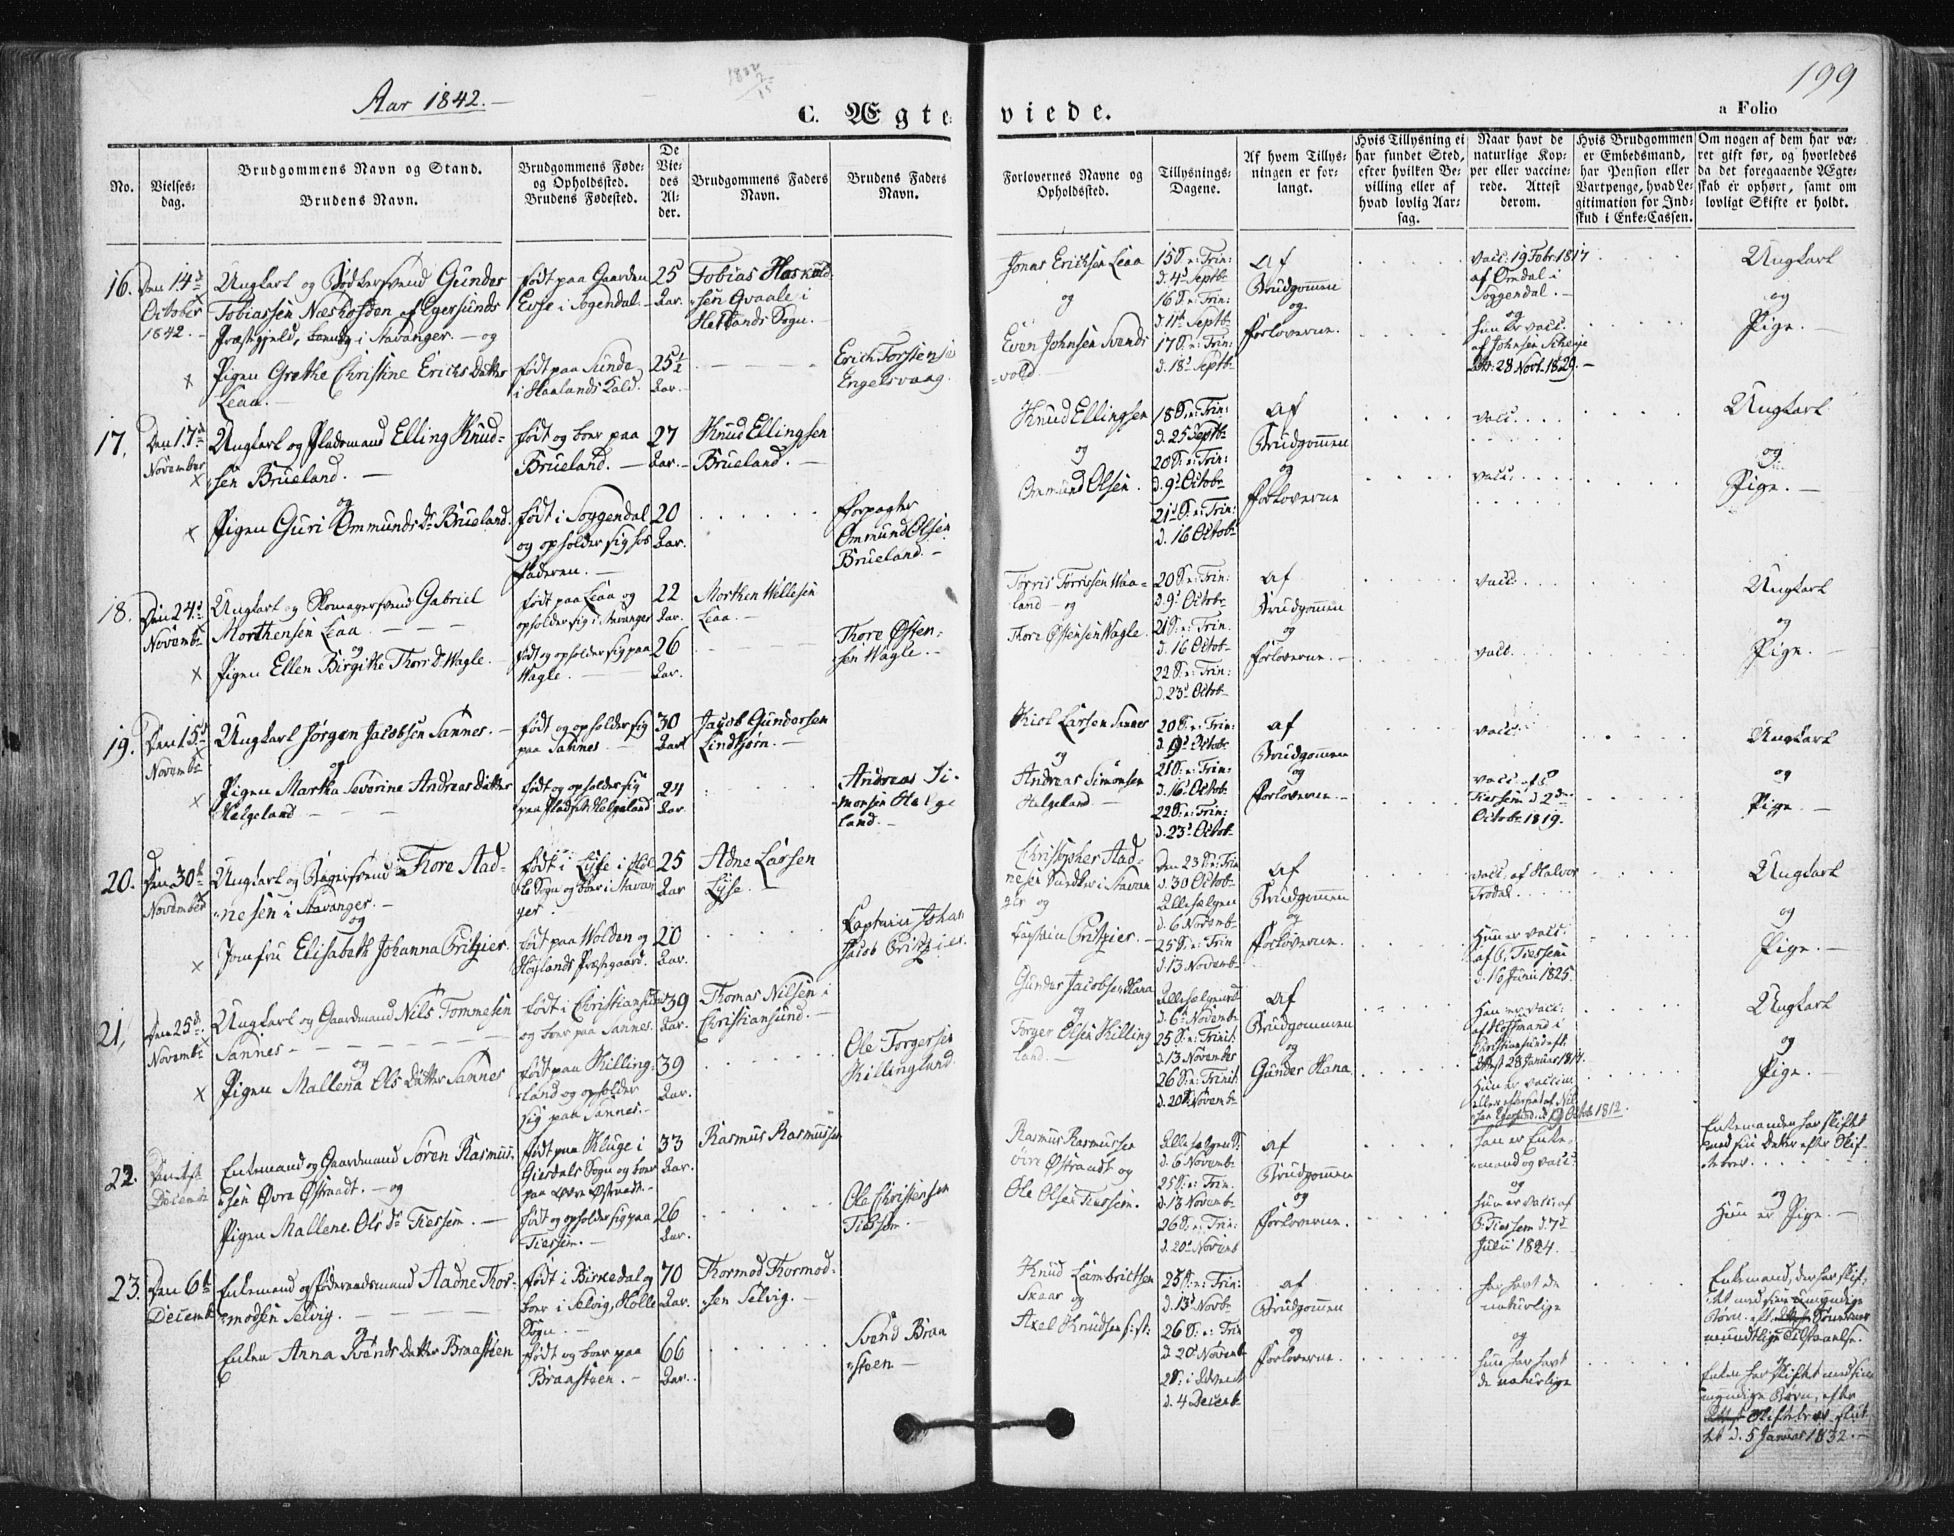 Aar 1842.
199
C. Ægteviede.
a Folio
No.
Vielses-dag.
Brudgommens Navn og Stand.
Brudens Navn.
Brudgommens Føde- og Opholdssted.
Brudens Fødested.
De Vie-des Al-der.
Brudgommens Faders Navn.
Brudens Faders Navn.
Forlovernes Navne og Opholdssted.
Tillysnings-Dagene.
Af hvem Tillys-ningen er for-langt.
Hvis Tillysning ei har fundet Sted, efter hvilken Be-villing eller af hvad lovlig Aar-sag.
Naar havt de naturlige Kop-per eller vaccine-rede. Attest derom.
Hvis Brudgommen er Embedsmand, har Pension eller Vartpenge, hvad Le-gitimation for Ind-skud i Enke-Cassen.
Om nogen af dem har væ-ret gift før, og hvorledes da det foregaaende Ægte-skab er ophørt, samt om lovligt Skifte er holdt.
16. Den 14d October 1842.
Ungkarl og Bødkersvend Gunder
Tobiassen Næshofden af Egersunds
Præstegjeld, boende i Stavanger. – og
Pigen Grethe Christine Erichs Datter
Leaa.
født paa Gaarden
Evje i Sogendal.
født paa Sunde
i Haalands Kald.
25 Aar.
25½ Aar.
Tobias
Qvaale i
Hetlands Sogn.
Erich Torstensen
Engelsvaag.
Jonas Erichsen Leaa
og
Even Johnsen Svends-
vold
15 S. e: Trin:
d. 4d Septbr
16 S. e: Trin:
d. 11t Septbr
17 S. e: Trin:
d. 18d Septbr
af
Brudgommen
og
Forloverne.
vacc. 19 Febr 1817
af Omdal i
Soggendal.
og
hun er vacc.
28 Novbr 1829.
Ungkarl
og
Pige.
17. Den 17d November
Ungkarl og Pladsmand Elling Knud-
sen Brueland.
og
Pigen Guri Ommunds Dr Brueland.
født og boer paa
Brueland.
født i Soggendal
og opholder sig hos
Faderen.
27 Aar.
20 Aar.
Knud Ellingsen
Brueland.
Forpagter
Ommund Olsen
Brueland.
Knud Ellingsen
og
Ommund Olsen.
18 S. e: Trin:
d. 25 Septbr
20 S. e: Trin:
d. 9d Octobr
21 S. e: Trin:
d. 16 Octobr
af
Brudgommen
og
Forloverne
vacc.
vacc.
Ungkarl
og
Pige.
18. Den 24d Novembr
Ungkarl og Skomagersvend Gabriel
Morthensen Leaa.
og
Pigen Ellen Birgithe Thors Dr Wagle.
født paa Leaa og
opholder sig i Stavanger
født og opholder sig paa
Wagle.
22 Aar.
26 Aar.
Morthen Willesen
Leaa.
Thore Østen-
sen Wagle.
Torris Torrissen Waa-
land og
Thore Østensen Wagle.
20 S. e: Trin:
d. 9d Octobr
21 S. e: Trin.
d. 16 Octobr
22 S. e: Trin:
d. 23d Octobr
af
Brudgommen
og
Forloverne.
vacc.
vacc.
Ungkarl
og
Pige.
19. Den 15d Novembr
Ungkarl Jørgen Jacobsen Sannes.
og
Pigen Martha Severine Andreas Datter
Helgeland
født og opholder sig
paa Sannes.
født og opholder sig
paa Pladset Helgeland
30 Aar
24 Aar.
Jacob Gundersen
Lindtjørn.
Andreas Si-
monsen Helge
land.
Larsen Sannes
og
Andreas Simonsen
Helgeland.
20 S. e: Trin:
d. 9d Octobr
21 S. e: Trin:
d. 16d Octobr
22 S. e: Trin:
d. 23d Octobr
af
Brudgommen
og
Forloverne.
vacc.
vacc. af
Tiessem d. 2den
Octobr 1819.
Ungkarl
og
Pige.
20. Den 30te November
Ungkarl og Bagersvend Thore Aad-
nesen i Stavanger.
og
Jomfru Elisabeth Johanna Critzier
født i Lyse i Høl-
le Sogn og boer i Stavan
ger.
født paa Wolden og
Høylands Præstegaard.
25 Aar
20 Aar.
Adne Larsen
Lyse.
Captain Johan
Jacob Critzier.
Christopher Aad-
nesen Snedker i Stavan
ger og
Captain Critzier.
Den 23 S. e: Trin
d. 30 Octobr
Allehelgen
d. 6 Novembr
25 S. e: Trin
d. 13 Novembr
af
Brudgommen
og
Forloverne.
vacc. af Halvor
Trodal.
Hun er vacc.
af C. Tiessem
d. 16 Juni 1825.
Ungkarl
og
Pige.
21. Den 25d Novembr
Ungkarl og Gaardmand Nils Tommesen
Sannes
og
Pigen Mallena Ols Datter Sannes
født i Christiansund
og boer paa Sannes.
født paa Killing-
land og opholder
sig paa Sannes.
39 Aar.
39 Aar.
Thomas Nilsen i
Christiansund.
Ole Torgersen
Killingland.
Gunder Jacobsen Hana
og
Torger Olsen Killing
land.
Allehelgensd.
d. 6t Novembr
25 S. e: Trinit:
d. 13 November
26 S. e: Trinit:
d. 20d Novembr
af
Brudgommen
og
Gunder Hana
Han er vacc:
af Hoffmand i
Christiansund eft.
Attest 28 Januar
Hun er vaccin
d. 12 Octobr 1812.
Ungkarl
og
Pige.
22. Den 1st Decembr
Enkemand og Gaardmand Søren Rasmus-
sen Øvre Østraadt. – og
Pigen Mallene Ols Dr Tiessem.
født paa Kluge i
Giesdals Sogn og boer
paa Øvre Østraadt.
født og opholder sig paa
Tiessem.
33 Aar.
26 Aar.
Rasmus Rasmussen
Ole Christensen
Tiessem.
Rasmus Rasmusse
Østraadt og
Ole Olsen Tiessem.
Allehelgensd.
d. 6 Novembr
25 S. e: Trin.
d. 13 Novembr
26 S. e: Trin:
d. 20d Novemb
af
Brudgommen
og
Forloverne.
han er Enke-
mand og vacc:
og
hun er vacc: af
C. Tiessem d. 7d
Julii 1824.
Enkemanden har skiftet
med sin Datter efter Skif-
tebrev.
og
Hun er Pige.
23. Den 6te Decembr
Enkemand og Føderaadsmand Aadne Thor-
modsen Selvig.
og
Enken Anna Svends Datter Braasteen
født i Birkedal og
boer i Selvig, Hølle
Sogn.
født og boer paa
Braasteen.
70 Aar.
66 Aar.
Thormod Thormod-
sen Selvig.
Svend Braa
steen
Knud Lambrechtsen
Skaar og
Axel Knudsen
25 S. e: Trin:
d. 13d Novbr
26 S. e: Trin
d. 20d Novembr
2 S. i Advent
d. 4 Decembr
af
Brudgommen
og
Forloverne.
har havt de
naturlige
og
hun har havt
de naturlige
Enkemand, der har skif-
tet med sine umyndige
Børn
mundtlige Tilstaaelse.
Enken har skiftet med sine
myndige Børn, efter
Skiftebrev slut
tet d. 5 Januar 1832.